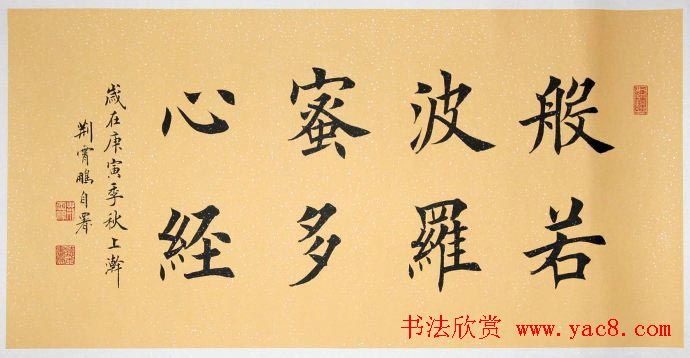 般若
波羅
蜜多
心経
歲在庚寅季秋上澣
荆霄鵬自署
书法欣赏 www.yac8.com